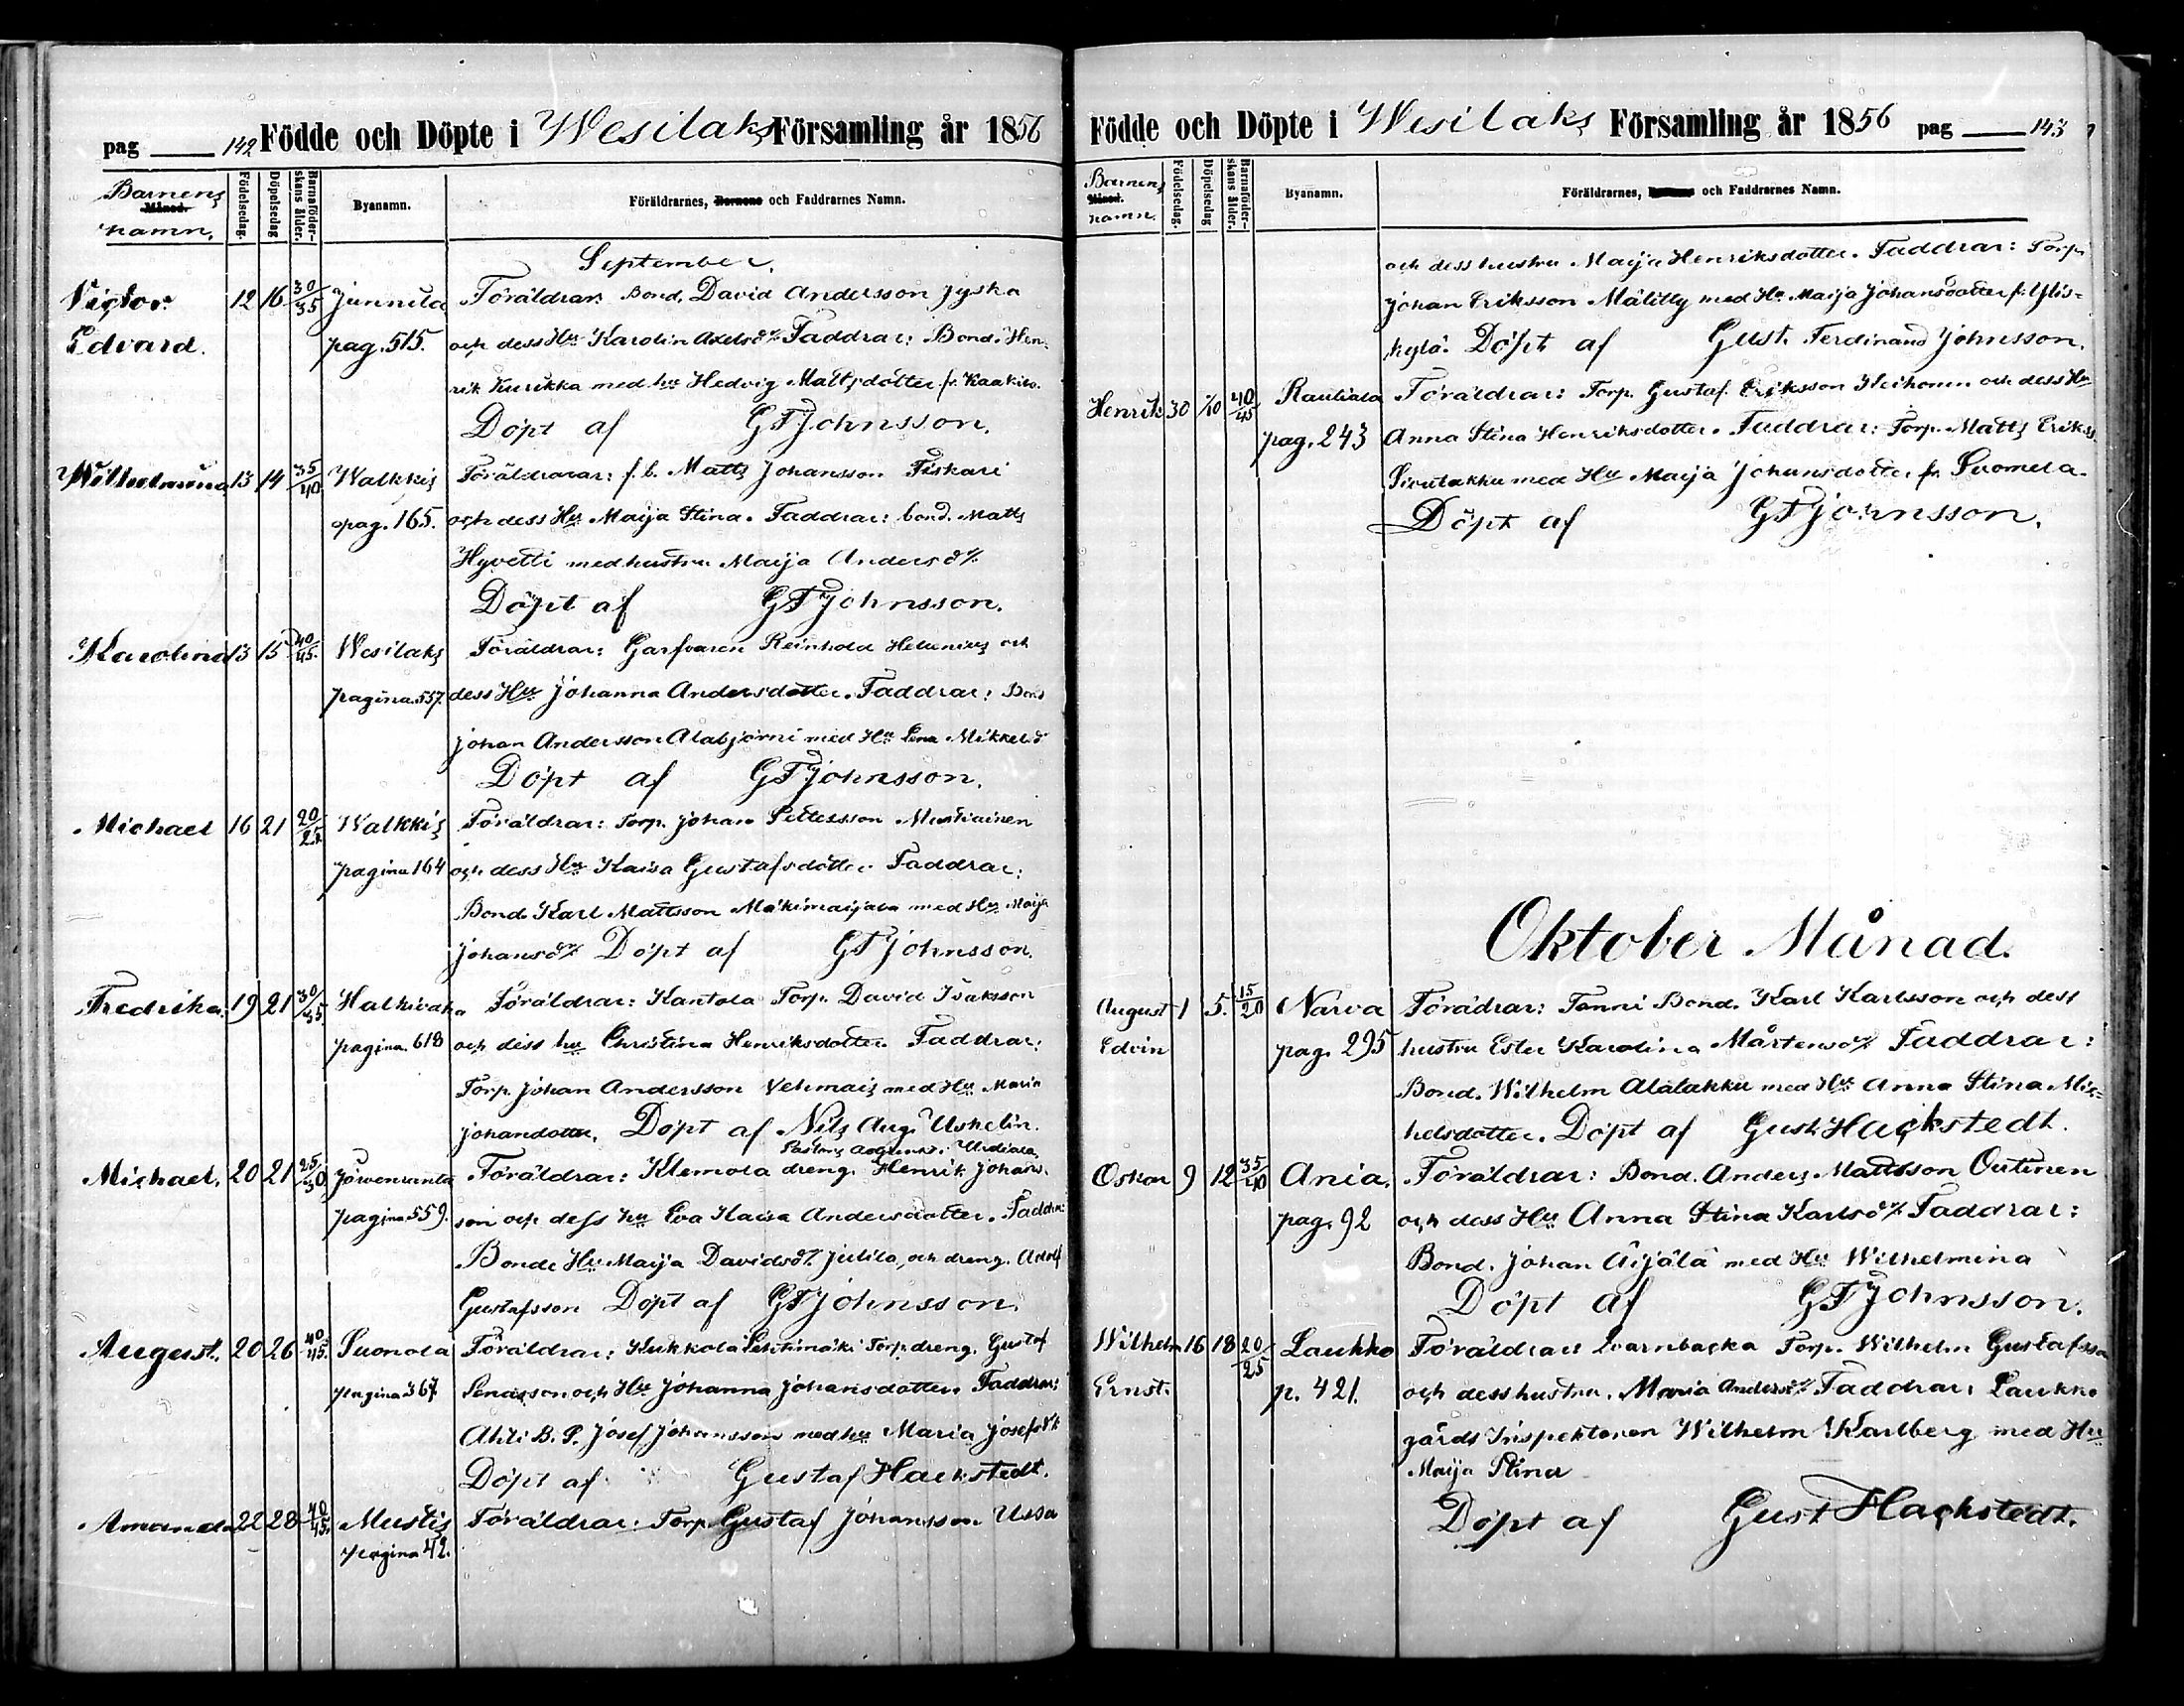 pag 142 Födde och Döpte i Wesilaks Församling år 1856
Barnens Månad. namn.
Födelsedag.
Döpelsedag
Barnaföderskans ålder.
Byanamn.
Föräldrarnes, Barnens och Faddrarnes Namn.
September.
Victor 12 16 30/35 Junnila Föräldrar: Bond. David Andersson Jyska
Edvard. pag. 515. och dess Hu Karolin Axelsdr Faddrar: Bond. Hen-
rik Kurikka med hu Hedvig Mattsdotter fr.
Döpt af GFJohnsson.
Wilhelmina 13 14 35/40 Walkkis Föräldrarar: f. b. Matts Johansson Fiskari
pag. 165. och dess Hu Maija Stina. Faddrar: bond. Matts
Hyvetti med hustru Maija Andersdr
Döpt af GFJohnsson.
Karolina 13 15 40/45. Wesilaks Föräldrar: Garfvaren Reinhold Helenius och
pagina 557. dess Hu Johanna Andersdotter. Faddrar: Bond
Johan Andersson Alabjörni med Hu Lena Mikkelsd
Döpt af GFJohnsson.
Michael 16 21 20/25. Walkkis Föräldrar: Torp. Johan Pettersson Mustiainen
pagina 164 och dess Hu Kaisa Gustafsdotter Faddrar:
Bond. Karl Mattsson Mäkimaijala med Hu Maija
Johansdr Döpt af GFJohnsson.
Fredrika. 19 21 30/35. Halkivaha Föräldrar: Kantola Torp. David Isaksson
pagina. 618 och dess hu Christina Henriksdotter Faddrar:
Torp. Johan Andersson Vehmais med Hu Maria
Johandotter. Döpt af Nils Aug. Uskelin.
Pastors Adjunkt i Urdiala
Michael. 20 21 25/30 Jöwenranta Föräldrar: Klemola dreng. Henrik Johans-
pagina 559. son och dess hu Eva Kaisa Andersdotter. Faddrar:
Bonde Hu Maija Davidsdr Julila, och dreng. Adolf
Gustafsson Döpt af GFJohnsson.
August. 20 26 40/45. Suonola Föräldrar: Kukkola Lehtimäki Torp dreng. Gustaf
pagina 367 och Hu Johanna Johansdotter Faddrar:
Ahli B. P. Josef Johansson med hu Maria Josefsdr
Döpt af Gustaf Hackstedt.
Amanda 22 28 40/45. Mustis Föräldrar: Torp. Gustaf Johansson Ussa
pagina 42.
Födde och Döpte i Wesilaks Församling år 1856 pag 143
Barnens Månad. namn.
Födelsedag.
Döpelsedag
Barnaföderskans ålder.
Byanamn.
Föräldrarnes, Barnens och Faddrarnes Namn.
och dess hustru Maija Henriksdotter. Faddrar: Torp.
Johan Eriksson Mälitty med Hu Maija Johansdotter fr. Ylis-
kylä. Döpt af Gust. Ferdinand Johnsson.
Henrik 30 1/10 40/45 Rautiala Föräldrar: Torp. Gustaf Eriksson Heikonen och dess Hu
pag. 243 Anna Stina Henriksdotter. Faddrar: Torp. Matts Eriks.
med Hu Maija Johansdotter fr. Suomela.
Döpt af GFJohnsson.
Oktober Månad.
August 1 5. 15/20 Narva Förädrar: Tanni Bond. Karl Karlsson och dess
Edvin pag. 295 hustru Ester Karolina Mårtensdr Faddrar:
Bond. Wilhelm Alalakku med Hu Anna Stina Mic-
helsdotter. Döpt af Gust. Hackstedt.
Oskar 9 12 35/40 Ania. Föräldrar: Bond. Anders Mattsson Outinen
pag. 92 och dess Hu Anna Stina Karlsdr Faddrar:
Bond. Johan Äijälä med Hu Wilhelmina
Döpt af GFJohnsson.
Wilhelm 16 18 20/25 Laukko Föräldrar Qvarnbacka Torp. Wilhelm Gustafsson
Ernst. p. 421. och dess hustru. Maria Andersdr Faddrar: Laukko
gårds Inspektoren Wilhelm Karlberg med Hu
Maija Stina
Döpt af Gust Hackstedt.